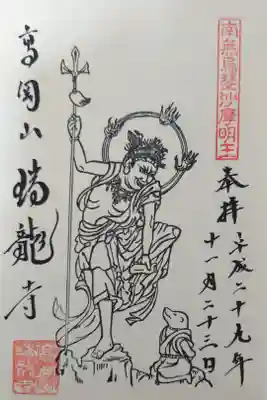 南無烏蒭沙摩明王
奉拝
平成二十九年
十一月二十三日
高岡山
瑞龍寺